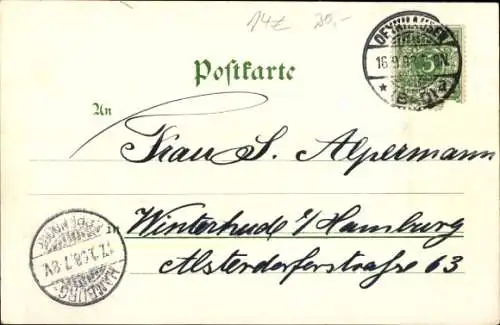 14£ 20,-
OEYNHAUSEN
5
(BAD) 2
Postkarte
An
Frau S. Alpermann
in
Winterhude i/Hamburg
Alsterdorferstraße 63
HAMBURG